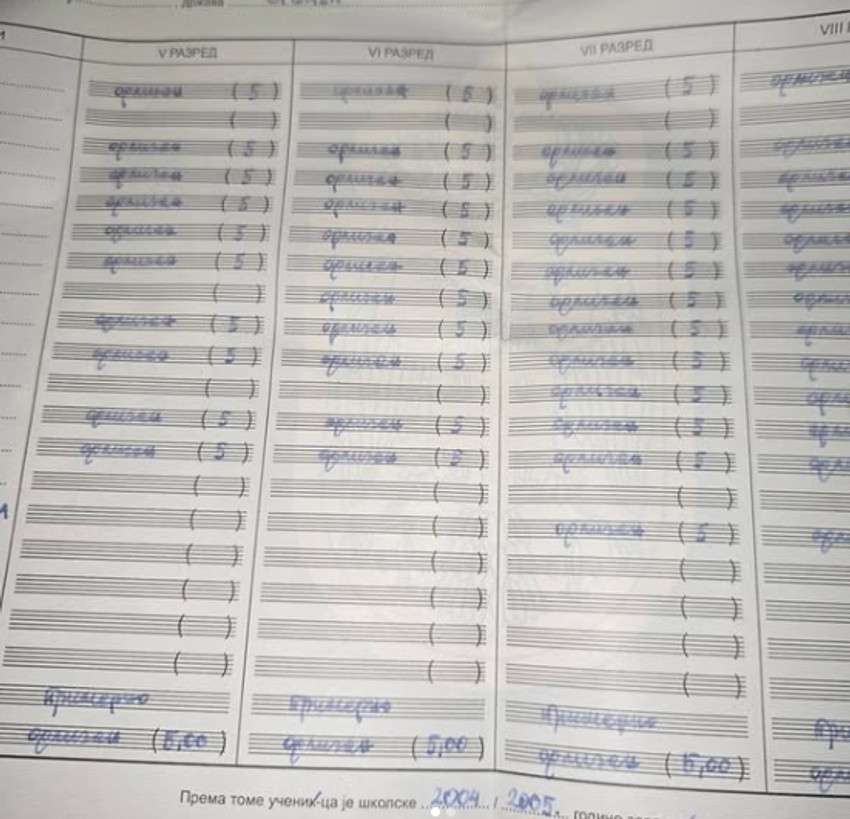 држава
V РАЗРЕД VI РАЗРЕД VII РАЗРЕД VIII
одличан (5) одличан (5) одличан (5)
( ) ( ) ( )
одличан (5) одличан (5) одличан (5)
одличан (5) одличан (5) одличан (5)
одличан (5) одличан (5) одличан (5)
одличан (5) одличан (5) одличан (5)
одличан (5) одличан (5) одличан (5)
( ) одличан (5) одличан (5)
одличан (5) одличан (5) одличан (5)
одличан (5) одличан (5) одличан (5)
( ) ( ) одличан (5)
одличан (5) одличан (5) одличан (5)
одличан (5) одличан (5) одличан (5)
( ) ( ) ( )
( ) ( ) одличан (5)
( ) ( ) ( )
( ) ( ) ( )
( ) ( ) ( )
( ) ( ) ( )
Примерно Примерно Примерно
одличан (5,00) одличан (5,00) одличан (5,00)
Према томе ученик/ца је школске 2004 / 2005. године